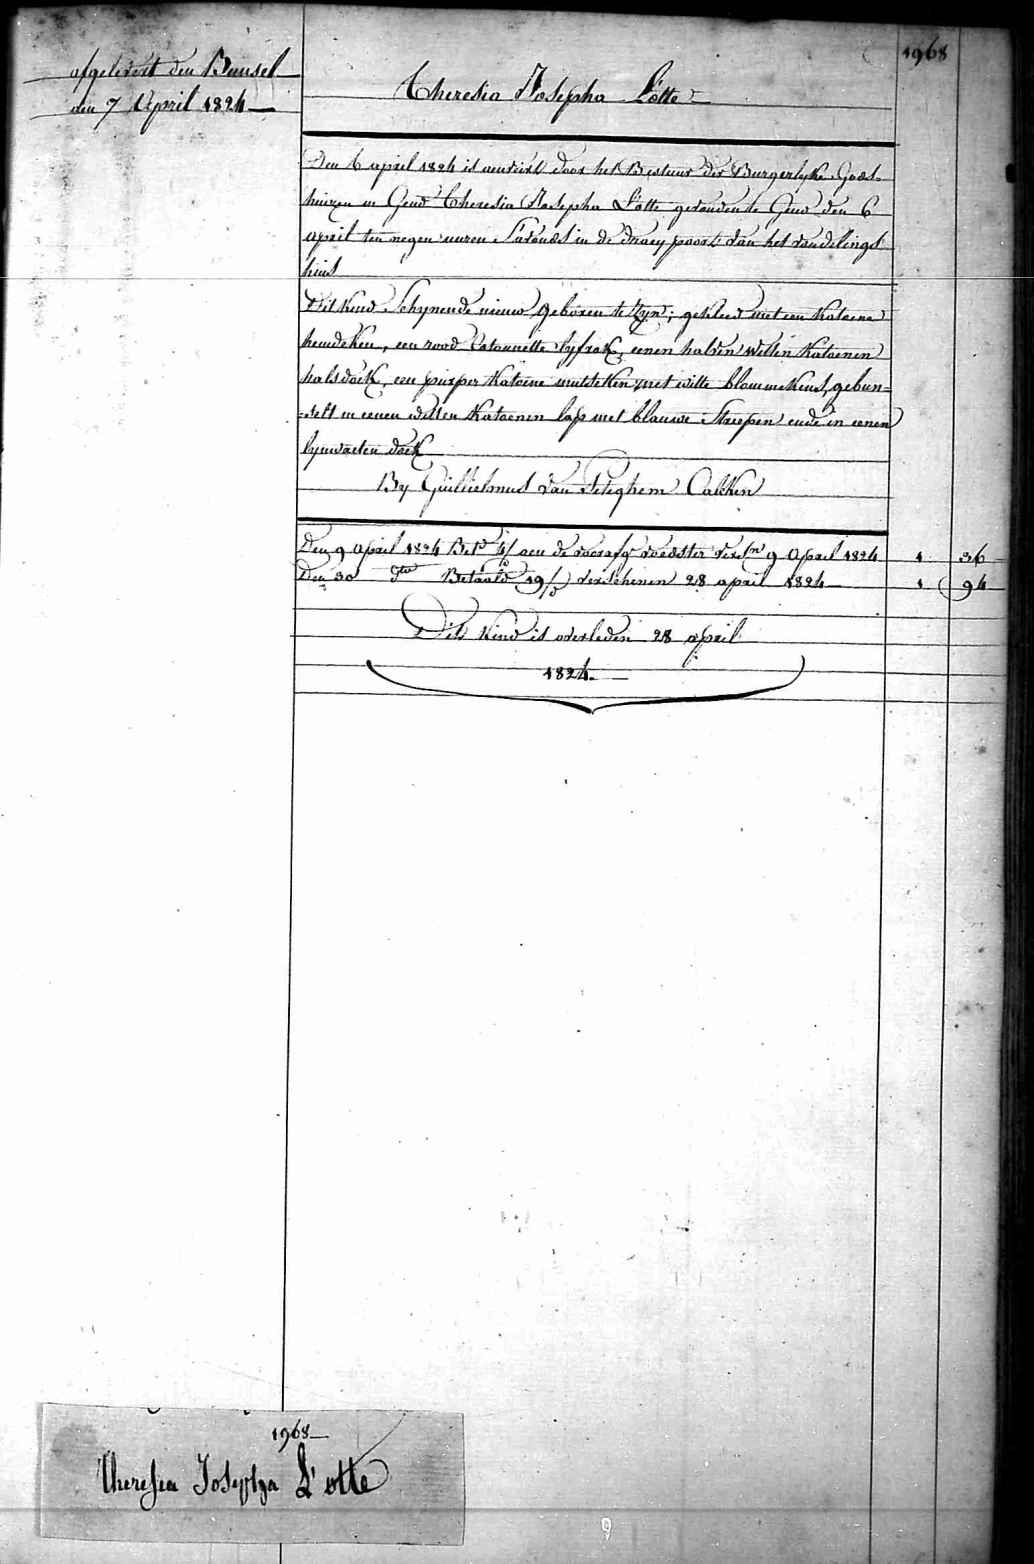 1968
afgelevert den Bunsel
den 7 April 1824
Theresia Josepha L'otte
Den 6 april 1824 is aanveirt door het Bestuur der Burgerlyke Gods-
huizen in Gend Theresia Josepha L'otte gevonden te Gend den 6
april ten negen uuren s'avonds in de draey poort van het vondelings
huis
Dit kind schynende nieuw geboren te zyn; gekleed met een katoene
hemdeken, een rood catounette lyfrok, eenen halven witten katoenen
halsdoek, een purper katoene mutseken met witte blommekens, gebun-
selt in eenen witten katoenen lap met blauwe streepen ende in eenen
lynwaeten doek
By Guillielmus van Peteghem Calken
Den 9 April 1824 Betd 4/ aen de voorafg voedster versn 9 April 1824 1 36
Den 30 dto Betaald 19/ verschenen 28 april 1824 1 94
Dit kind is overleden 28 april
1824.
1968
Theresia Josepha L'otte
9